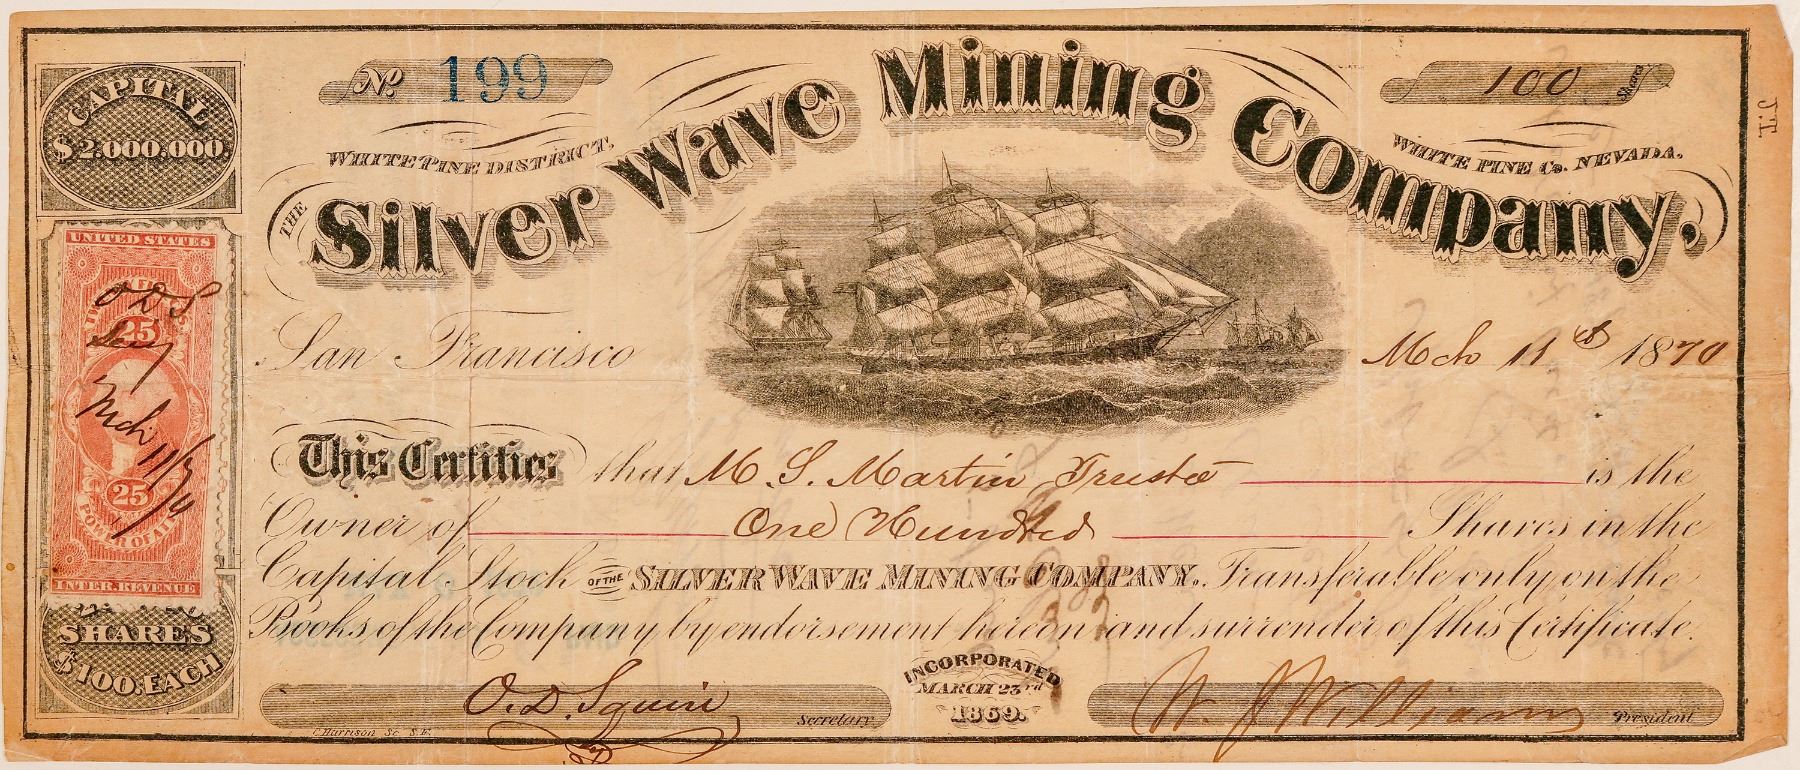 CAPITAL
$2.000.000.
No. 199
100 Shares
WHITE PINE DISTRICT,
WHITE PINE Co. NEVADA.
THE Silver Wave Mining Company.
J.T.
UNITED STATES
25
25
POWER OF ATT
INTER. REVENUE
O D S
Secy
Mch 11/70
SHARES
$100: EACH
San Francisco Mch 11th 1870
This Certifies that M. S. Martin Trustee is the
Owner of One Hundred Shares in the
Capital Stock OF THE SILVER WAVE MINING COMPANY. Transferable only on the
Books of the Company by endorsement hereon and surrender of this Certificate.
INCORPORATED
MARCH 23rd
1869.
O. D. Squire Secretary
W. J. Williams President
C. Harrison Sc. S.F.